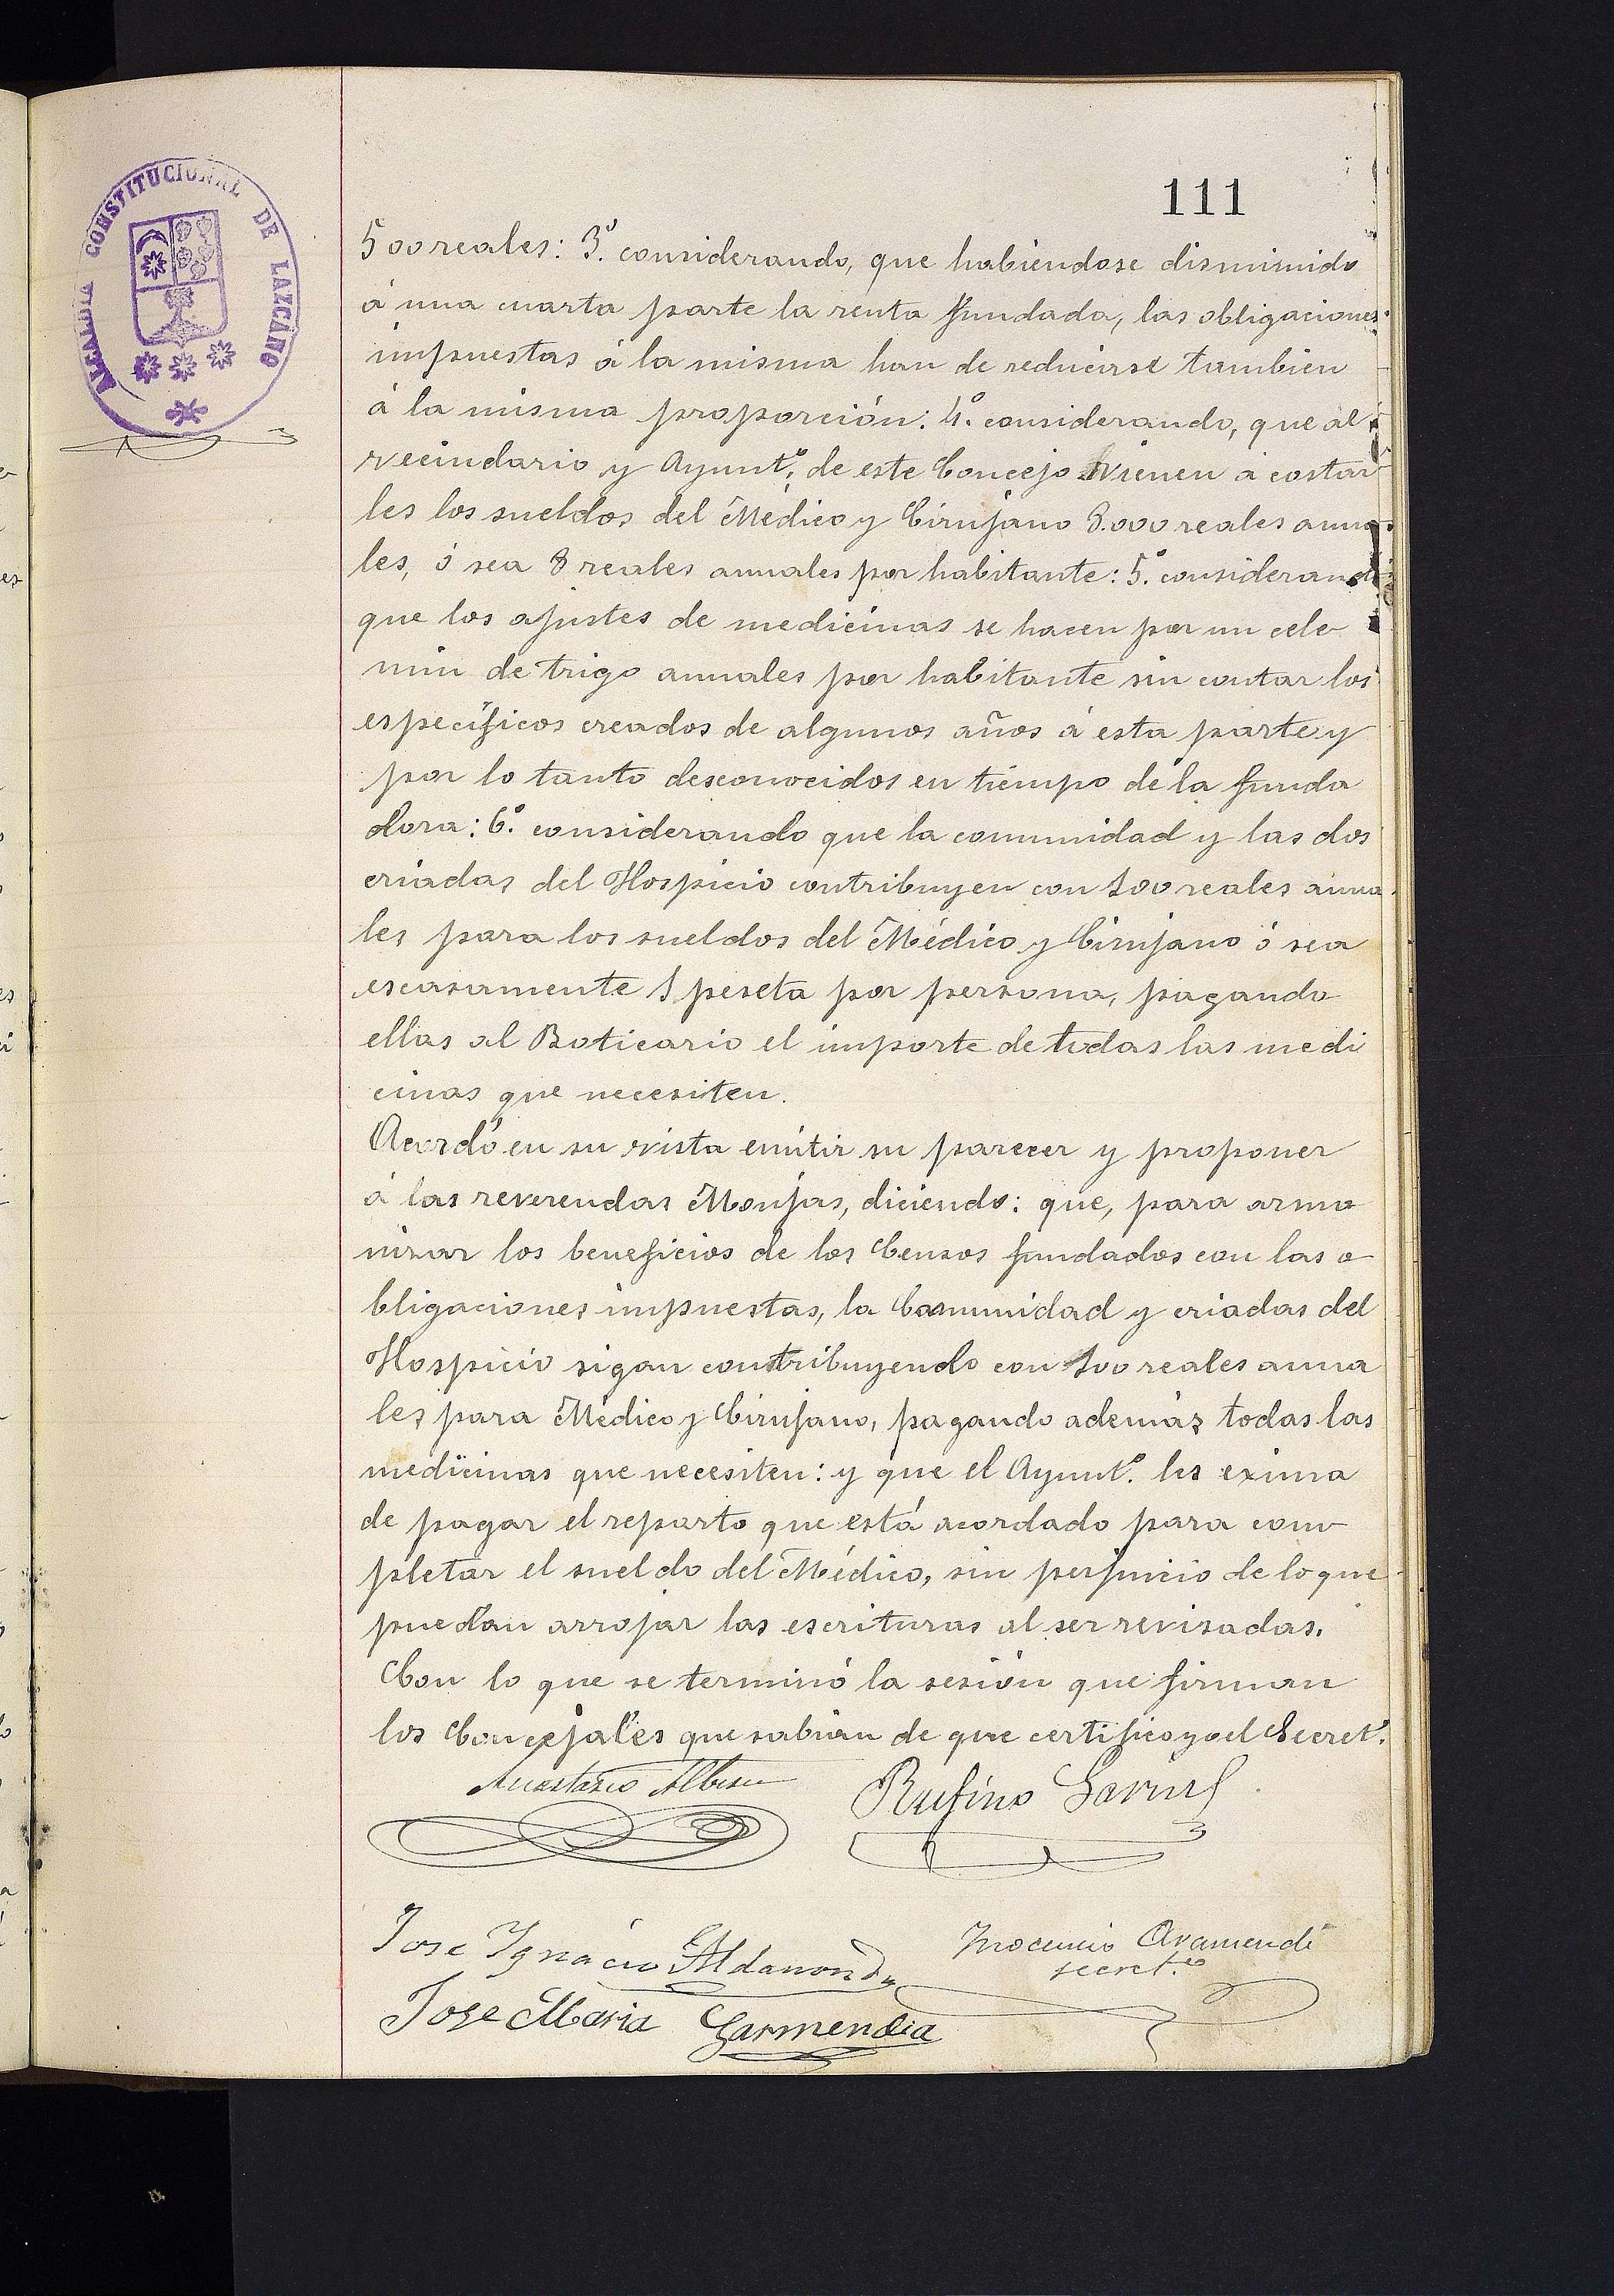 ALCALDIA CONSTITUCIONAL DE LAZCANO
111
500 reales: 3.º considerando, que habiendose disminuido
á una cuarta parte la renta fundada, las obligaciones
impuestas á la misma han de reducirse tambien
á la misma proporción: 4.º considerando, que al
vecindario y Ayunt.º de este Concejo vienen á costar
les los sueldos del Médico y Cirujano 8.000 reales anua
les, ó sea 8 reales anuales por habitante: 5.º considerando
que los ajustes de medicinas se hacen por un cele
min de trigo anuales por habitante sin contar los
específicos creados de algunos años á esta parte y
por lo tanto desconocidos en tiempo de la funda
dora: 6.º considerando que la comunidad y las dos
criadas del Hospicio contribuyen con 100 reales anua
les para los sueldos del Médico y Cirujano ó sea
escasamente 1 peseta por persona, pagando
ellas al Boticario el importe de todas las medi
cinas que necesiten.
Acordó en su vista emitir su parecer y proponer
á las reverendas Monjas, diciendo: que, para armo
nizar los beneficios de los Censos fundados con las o
bligaciones impuestas, la Comunidad y criadas del
Hospicio sigan contribuyendo con 100 reales anua
les para Médico y Cirujano, pagando además todas las
medicinas que necesiten: y que el Ayunt.º les exima
de pagar el reparto que está acordado para com
pletar el sueldo del Médico, sin perjuicio de lo que
puedan arrojar las escrituras al ser revisadas.
Con lo que se terminó la sesión que firman
los Concejales que sabian de que certifico yo el Secret.º
Anastasio Albisu Rufino Garin
Jose Ignacio Aldanondo Inocencio Aramendi
secret.º
Jose Maria Garmendia